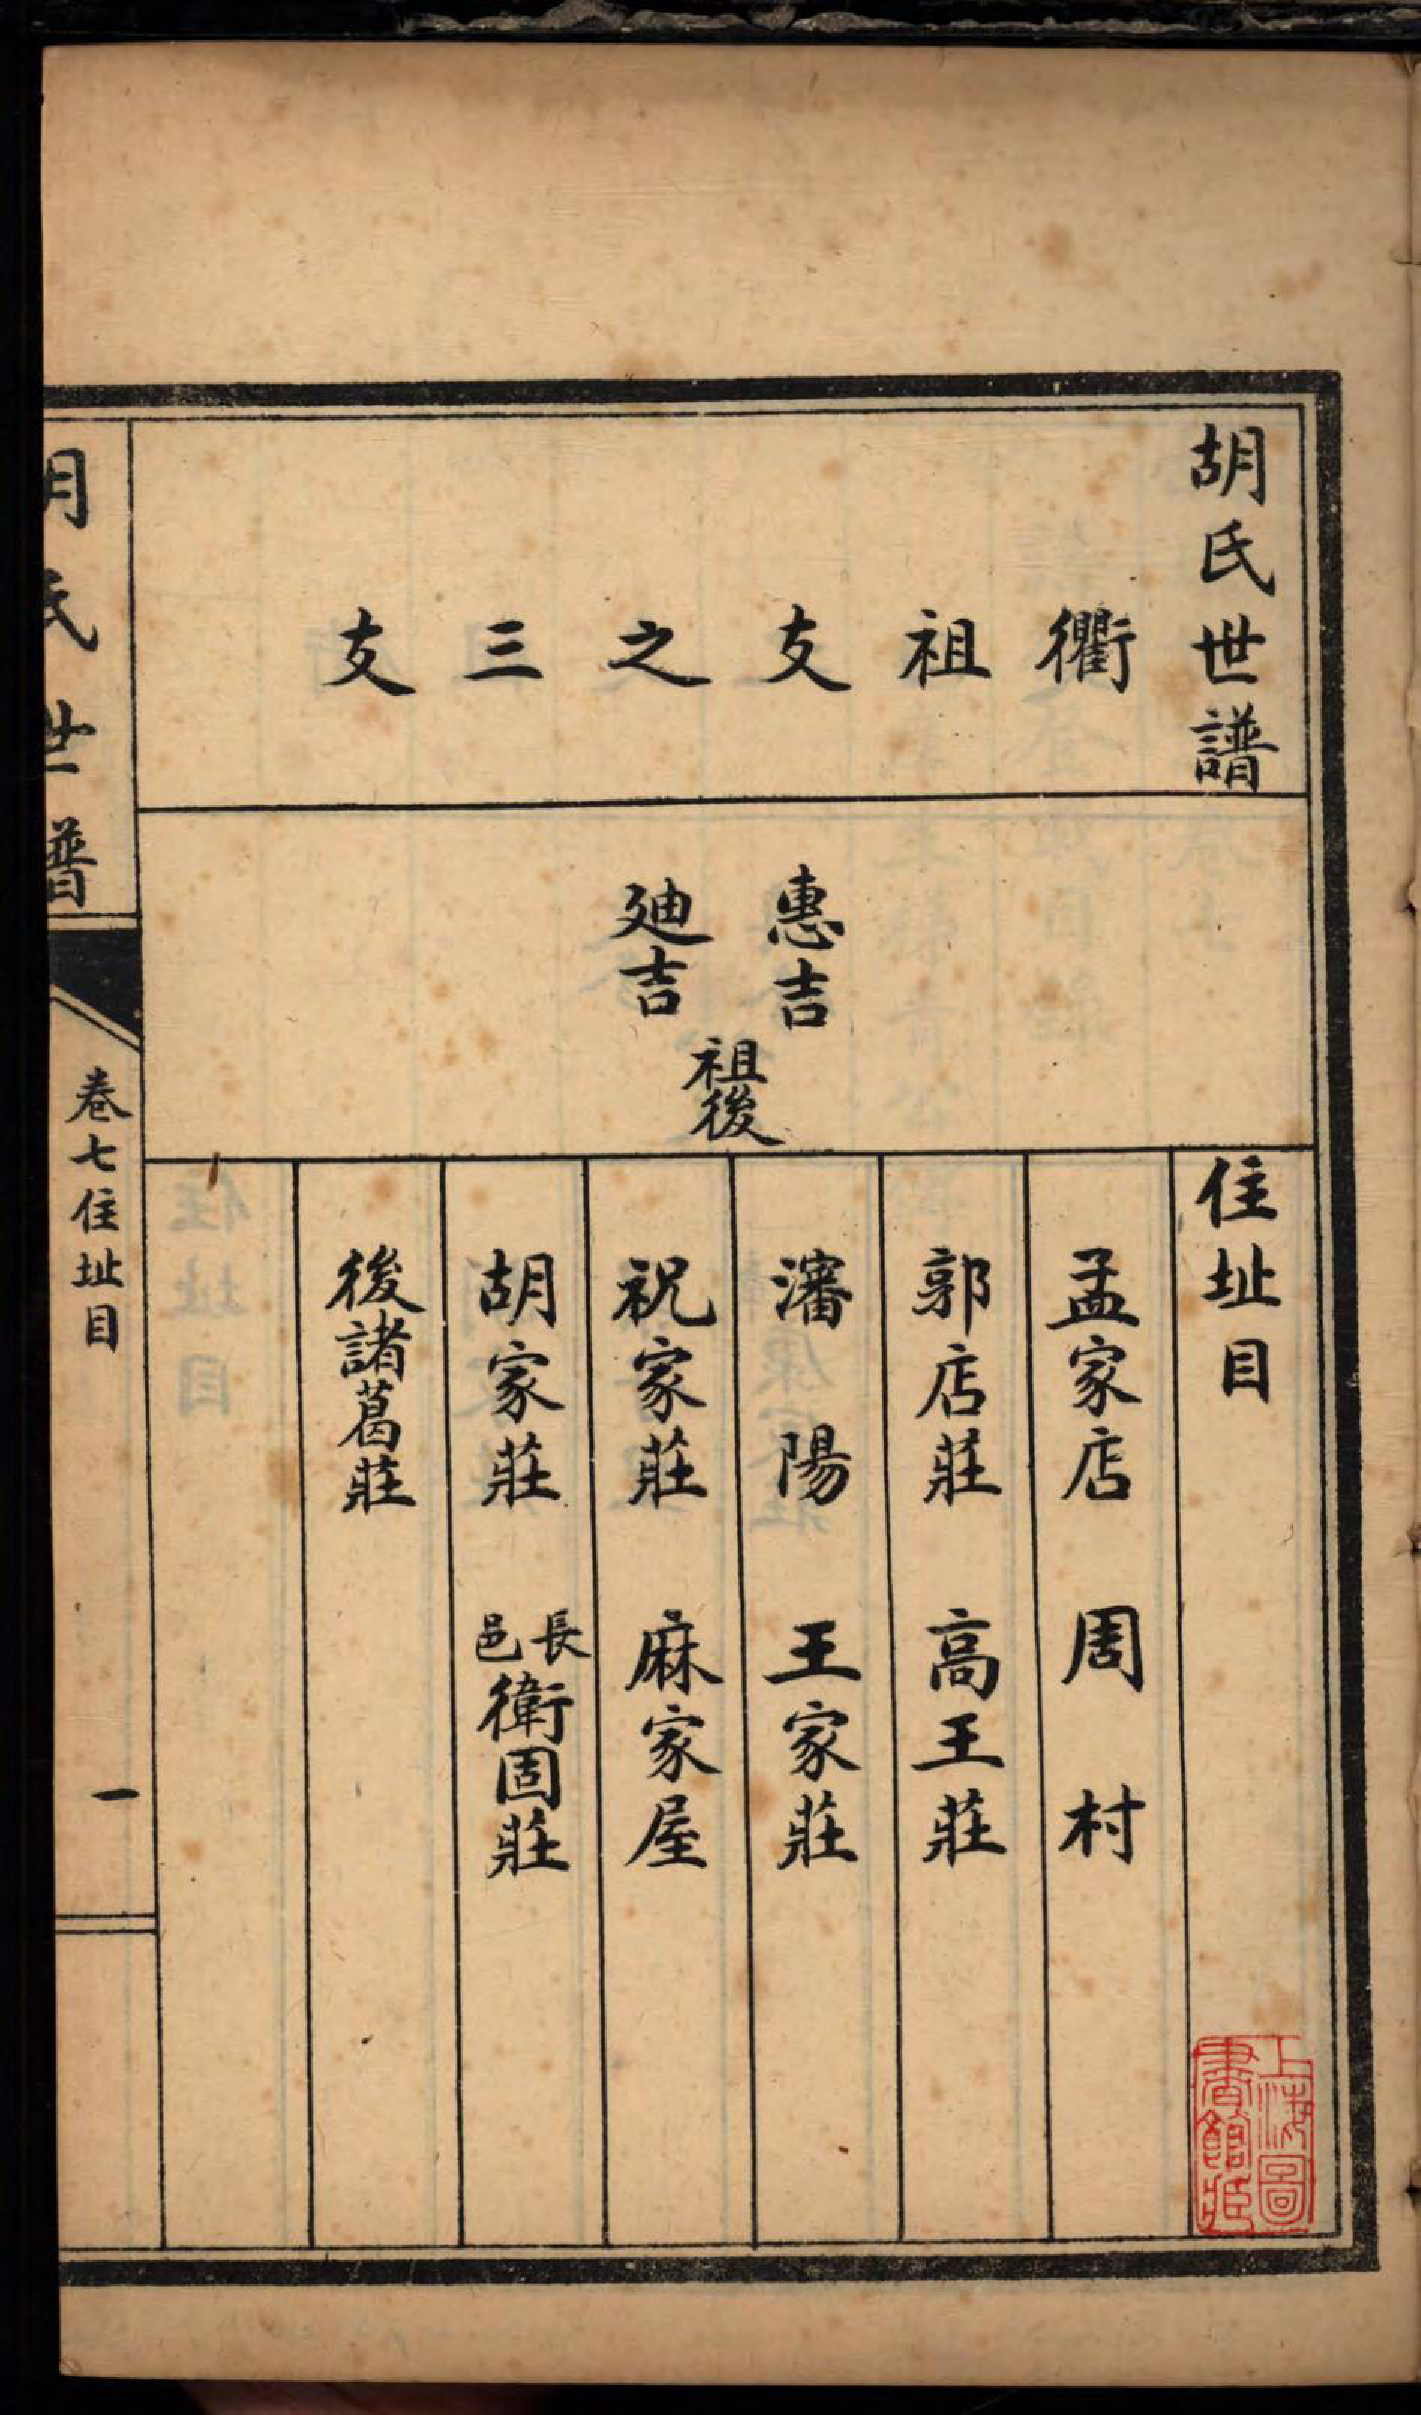 胡氏世譜
住址目
衢祖支之三支
惠吉
廸吉
祖後
孟家店 周村
郭店莊 高王莊
瀋陽 王家莊
祝家莊 麻家屋
胡家莊 長邑衛固莊
後諸葛莊
胡氏世譜
卷七住址目
一
上海圖書館藏